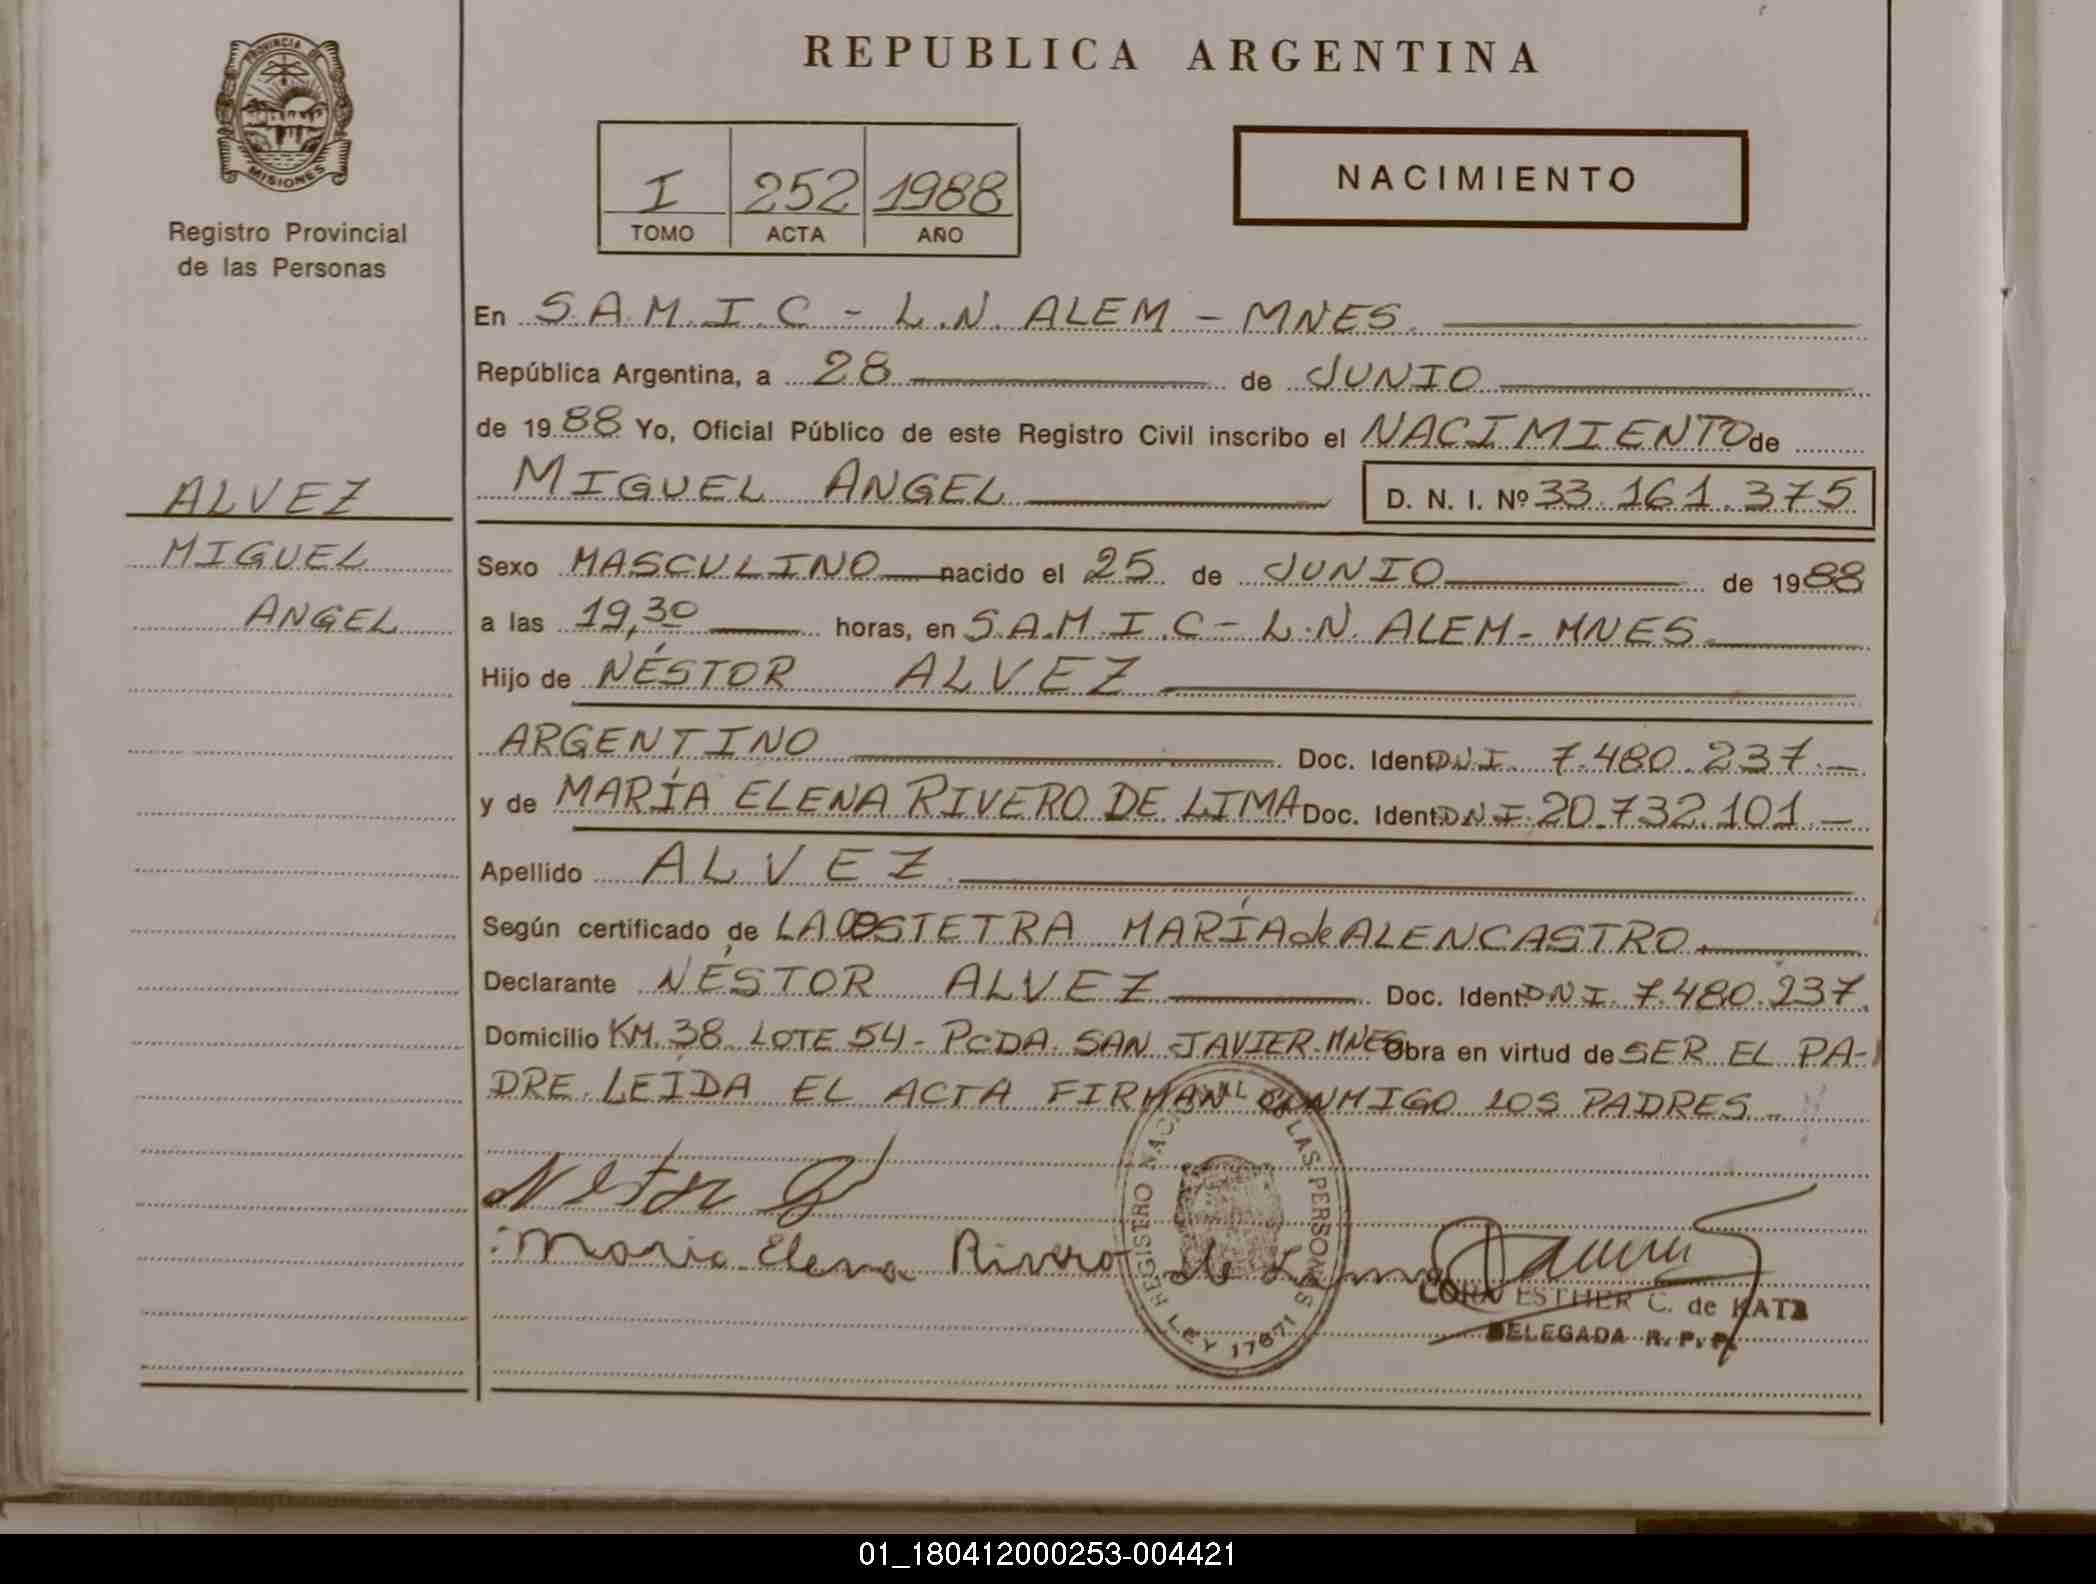 REPUBLICA ARGENTINA
PROVINCIA DE
MISIONES
Registro Provincial
de las Personas
I 252 1988
TOMO ACTA AÑO
NACIMIENTO
En S.A.M.I.C - L.N. ALEM - MNES.
República Argentina, a 28 de JUNIO
de 1988 Yo, Oficial Público de este Registro Civil inscribo el NACIMIENTO de
MIGUEL ANGEL D. N. I. Nº 33.161.375
ALVEZ
MIGUEL
ANGEL
Sexo MASCULINO nacido el 25 de JUNIO de 1988
a las 19,30 horas, en S.A.M.I.C - L.N. ALEM - MNES.
Hijo de NÉSTOR ALVEZ
ARGENTINO Doc. Ident. DNI. 7.480.237.-
y de MARÍA ELENA RIVERO DE LIMA Doc. Ident. DNI. 20.732.101.-
Apellido ALVEZ
Según certificado de LA OBSTETRA MARÍA de ALENCASTRO.
Declarante NÉSTOR ALVEZ Doc. Ident. DNI. 7.480.237.
Domicilio KM. 38 LOTE 54 - PCDA. SAN JAVIER-MNES Obra en virtud de SER EL PA-
DRE. LEÍDA EL ACTA FIRMAN CONMIGO LOS PADRES.-
Nestor
Maria Elena Rivero de Lima
REGISTRO NACIONAL DE LAS PERSONAS
LEY 17671
CORA ESTHER C. de KATZ
DELEGADA R. P. P.
01_180412000253-004421